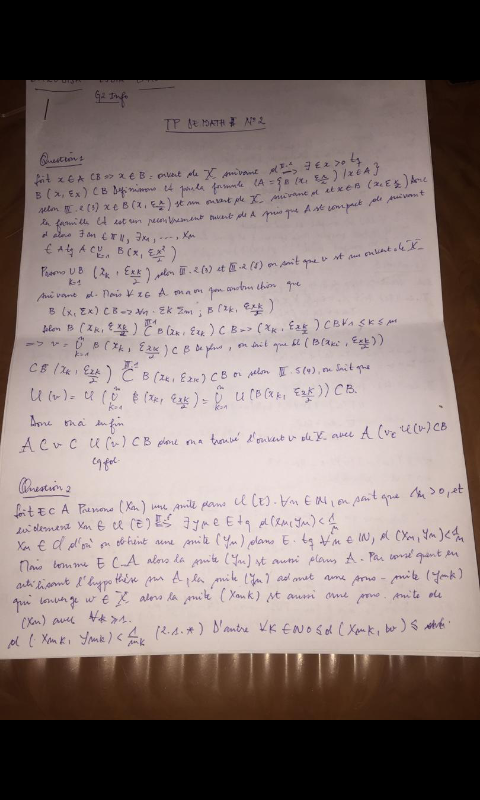 G2 Info
TP DE MATH N°2
Question 1
Soit x ∈ A ⊂ B => x ∈ B ouvert de X suivant d => ∃ εx > 0 tq
B(x, εx) ⊂ B Definissons U par la formule U = {B(x, εx/2) / x ∈ A}
selon III.2(3) x ∈ B(x, εx/2) est un ouvert de X suivant d et x ∈ B(x, εx/2) donc
la famille U est un recouvrement ouvert de A puis que A est compact de suivant
d alors ∃ m ∈ N, ∃ x1, ..., xm
∈ A tq A ⊂ ∪ B(x, εx/2)
Posons ∪ B(xk, εxk/2) selon III.2(3) et III.2(2) on sait que v est un ouvert de X
suivant d. Mais ∀x ∈ A on a par construction que
B(x, εx) ⊂ B => B(xk, εxk/2)
Selon B(xk, εxk/2) ⊂ B(xk, εxk) ⊂ B => (xk, εxk/2) ⊂ B ∀ 1 ≤ k ≤ m
=> v = ∪ B(xk, εxk/2) ⊂ B De plus, on sait que (B(xk, εxk/2))
⊂ B(xk, εxk/2) ⊂ B(xk, εxk) ⊂ B or selon III.5(4), on sait que
U(v) = U(∪ B(xk, εxk/2)) = ∪ U(B(xk, εxk/2)) ⊂ B.
Donc on a enfin
A ⊂ v ⊂ U(v) ⊂ B donc on a trouvé l'ouvert v de X avec A ⊂ v ⊂ U(v) ⊂ B
cqfd
Question 2
Soit E ⊂ A Prenons (Xm) une suite dans U(E). ∀m ∈ N, on sait que 1/m > 0, et
evidement Xm ∈ U(E) => ∃ ym ∈ E tq d(xm, ym) < 1/m
d'où on obtient une suite (Ym) dans E tq ∀m ∈ N, d(Xm, Ym) < 1/m
Mais comme E ⊂ A alors la suite (Ym) est aussi dans A. Par conséquent en
utilisant l'hypothèse sur A, la suite (Ym) admet une sous-suite (Ymk)
qui converge w ∈ X alors la suite (Xmk) est aussi une sous-suite de
(Xm) avec ∀k ≥ 1.
d(Xmk, Ymk) < 1/mk (2.1.*) D'autre ∀k ∈ N 0 ≤ d(Xmk, w) ≤